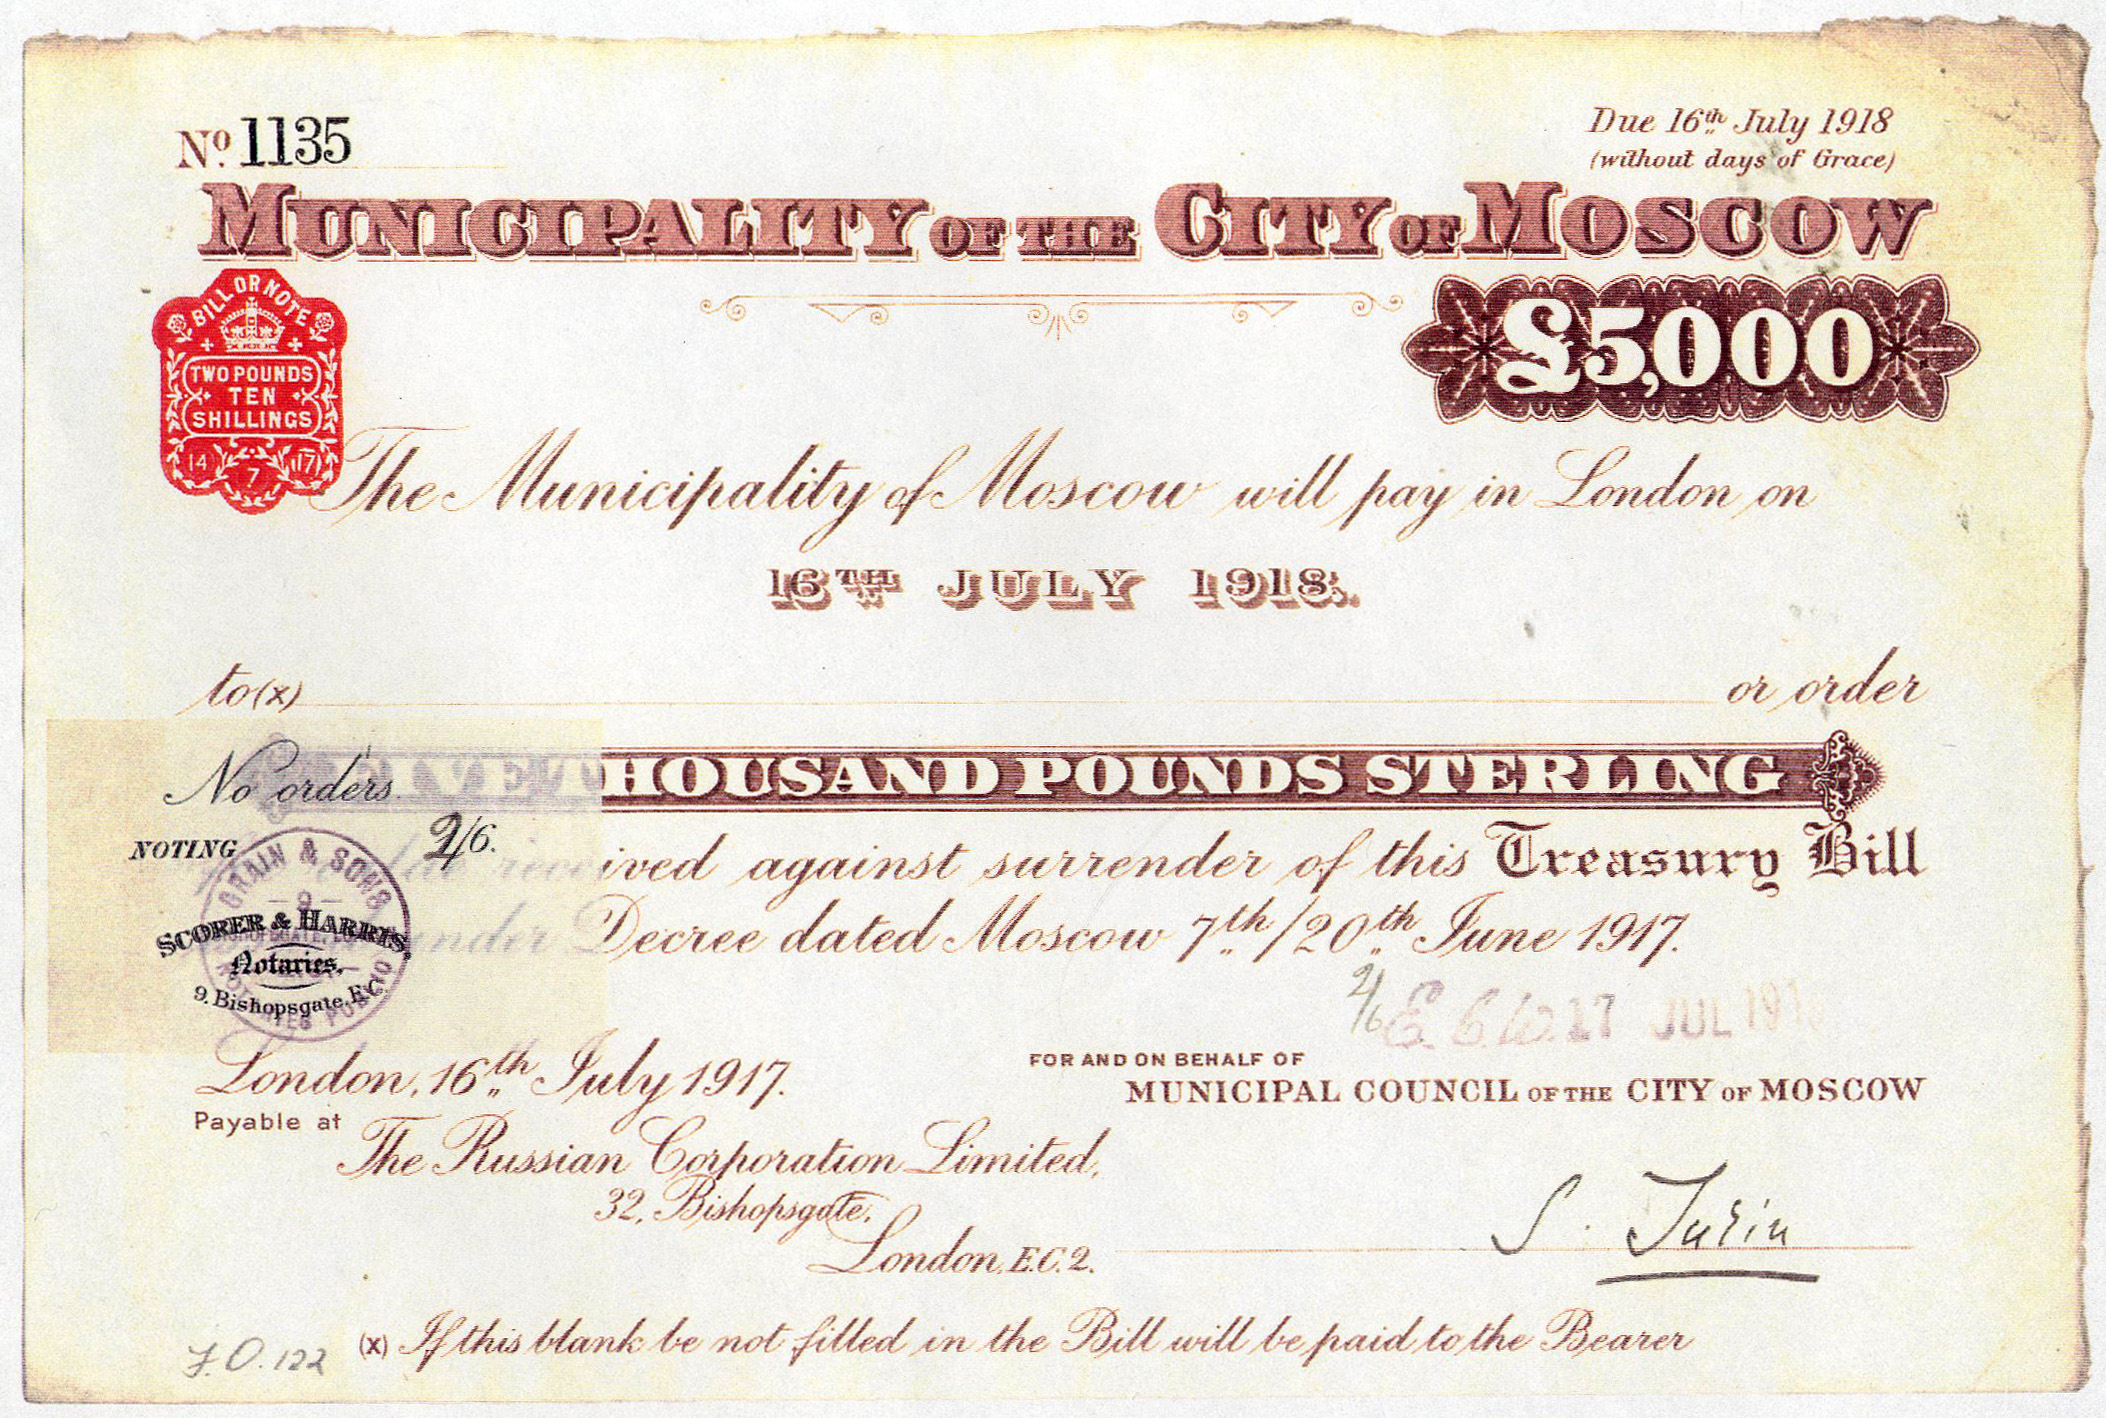 Nº 1135
Due 16th July 1918
(without days of Grace)
MUNICIPALITY OF THE CITY OF MOSCOW
BILL OR NOTE
TWO POUNDS
TEN
SHILLINGS
14 7 17
£5,000
The Municipality of Moscow will pay in London on
16TH JULY 1918.
to (x) or order
No orders.
FIVE THOUSAND POUNDS STERLING
NOTING 2/6.
received against surrender of this Treasury Bill
under Decree dated Moscow 7th/20th June 1917.
GRAIN & SONS
NOTARIES PUBLIC
SCORER & HARRIS,
Notaries,
9, Bishopsgate, E.C.
2/6
17 JUL
London, 16th July 1917.
FOR AND ON BEHALF OF
MUNICIPAL COUNCIL OF THE CITY OF MOSCOW
Payable at
The Russian Corporation Limited,
32, Bishopsgate,
London, E.C.2.
(x) If this blank be not filled in the Bill will be paid to the Bearer
F.O. 122